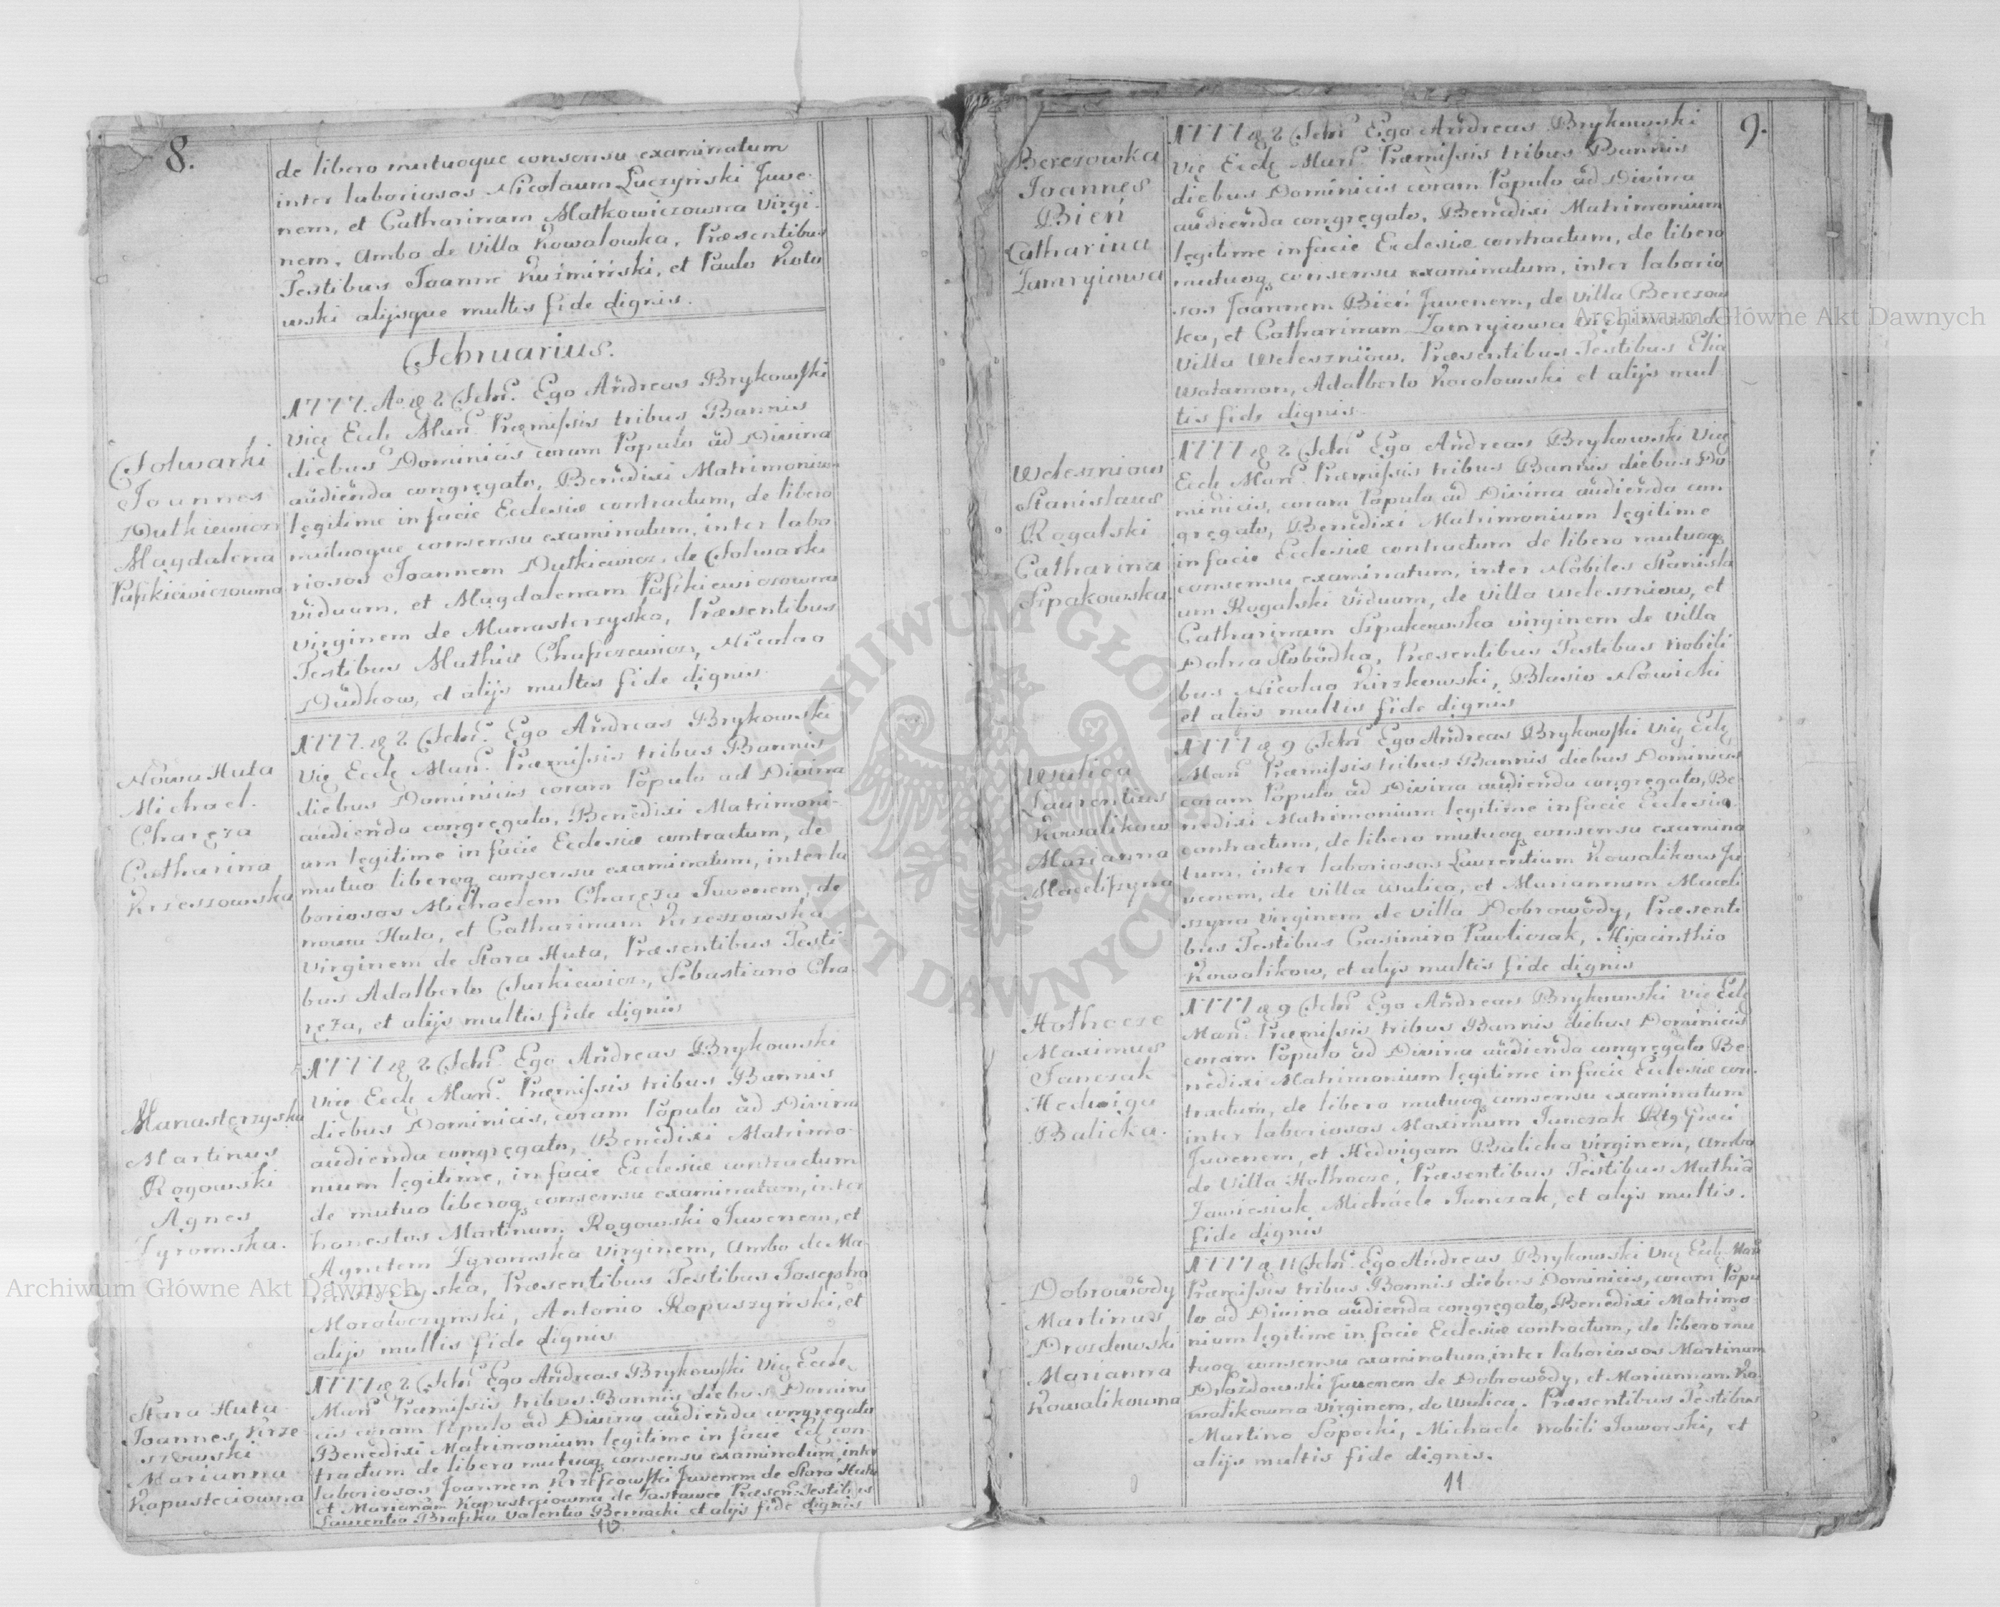 8.
de libero mutuoque consensu examinatum
inter laboriosos Nicolaum Łuczyński Juve-
nem, et Catharinam Matkowiczowna Virgi-
nem, Ambo de Villa Kowalowka, Præsentibus
Testibus Joanne Kuźmiński, et Paulo Koto
wski alijsque multis fide dignis.
Februarius.
Folwarki
Joannes
Dutkiewicz
Magdalena
Paszkiewiczowna
1777. Ao d 2 Febr. Ego Andreas Brykowski
Vic Eccl Mon. Præmissis tribus Bannis
diebus Dominicis coram Populo ad Divina
audienda congregato, Benedixi Matrimonium
legitime in facie Ecclesiæ contractum, de libero
mutuoque consensu examinatum, inter labo
riosos Joannem Dutkiewicz, de Folwarki
viduum, et Magdalenam Paszkiewiczowna
virginem de Monasterzyska, Præsentibus
Testibus Mathia Chaszczewicz, Nicolao
Dudkow, et alijs multis fide dignis.
Nowa Huta
Michael
Charęza
Catharina
Krzeszowska
1777. d 2 Febr. Ego Andreas Brykowski
Vic Eccl Mon. Præmissis tribus Bannis
diebus Dominicis coram Populo ad Divina
audienda congregato, Benedixi Matrimoni-
um legitime in facie Ecclesiæ contractum, de
mutuo liberoq consensu examinatum, inter la
boriosos Michaelem Charęza Juvenem, de
nowa Huta, et Catharinam Krzeszowska
Virginem de Stara Huta, Præsentibus Testi
bus Adalberto Jurkiewicz, Sebastiano Cha
ręza, et alijs multis fide dignis
Manasterzyska
Martinus
Rogowski
Agnes
Tyromska.
1777 d 2 Febr. Ego Andreas Brykowski
Vic Eccl Mon. Præmissis tribus Bannis
diebus Dominicis, coram Populo ad Divina
audienda congregato, Benedixi Matrimo-
nium legitime, in facie Ecclesiæ contractum
de mutuo liberoq consensu examinatum, inter
honestos Martinum Rogowski Juvenem, et
Agnetem Tyromska Virginem, Ambo de Ma-
nasterzyska, Præsentibus Testibus Josepho
Morawczynski, Antonio Kopuszyński, et
alijs multis fide dignis
Stara Huta
Joannes Krze
szowski
Marianna
Kapusteciowna
1777 d 2 Febr Ego Andreas Brykowski Vic Eccle
Mon. Præmissis tribus Bannis diebus Domini
cis coram Populo ad Divina audienda congregato
Benedixi Matrimonium legitime in facie Eccl con-
tractum de libero mutuoq consensu examinatum, inter
laboriosos Joannem Krzeszowski Juvenem de Stara Huta
et Mariannam Kapusteciowna de Præsen: Testibus
Laurentio Valentio Bernacki et alijs fide dignis
10
9.
Berezowka
Joannes
Bień
Catharina
1777 d 2 Febr. Ego Andreas Brykowski
Vic Eccl Mon. Præmissis tribus Bannis
diebus Dominicis coram Populo ad Divina
audienda congregato, Benedixi Matrimonium
legitime in facie Ecclesiæ contractum, de libero
mutuoq consensu examinatum, inter laborio
sos Joannem Bień Juvenem, de villa Berezow
ka, et Catharinam virginem de
Villa Weleszniow. Præsentibus Testibus Elia
Wataman, Adalberto Korolowski et alijs mul-
tis fide dignis.
Weleszniow
Stanislaus
Rogalski
Catharina
Szpakowska
1777 d 2 Febr Ego Andreas Brykowski Vic
Eccl Mon. Præmissis tribus Bannis diebus Do
minicis, coram Populo ad Divina audienda con
gregato, Benedixi Matrimonium legitime
in facie Ecclesiæ contractum de libero mutuoq
consensu examinatum, inter Nobiles Stanisla
um Rogalski Viduum, de Villa Weleszniow, et
Catharinam Szpakowska virginem de Villa
Dolna Słobodka, Præsentibus Testibus Nobili
bus Nicolao Kirzkowski, Blasio Nowicki
et alijs multis fide dignis
Wulica
Laurentius
Kowalikow
Marianna
Macelszyna
1777 d 9 Febr Ego Andreas Brykowski Vic Eccl
Mon. Præmissis tribus Bannis diebus Dominicis
coram Populo ad Divina audienda congregato, Be-
nedixi Matrimonium legitime in facie Ecclesiæ
contractum, de libero mutuoq consensu examina
tum, inter laboriosos Laurentium Kowalikow Ju
venem, de Villa Wulica, et Mariannam Maceli
szyna Virginem de Villa Dobrowody, Præsenti
bus Testibus Casimiro Pawliczak, Hijacinthio
Kowalikow, et alijs multis fide dignis
Hothocze
Maximus
Janczak
Hedwiga
Balicka.
1777 d 9 Febr Ego Andreas Brykowski Vic Eccl
Mon. Præmissis tribus Bannis diebus Dominicis
coram Populo ad Divina audienda congregato Be-
nedixi Matrimonium legitime in facie Ecclesiæ con-
tractum, de libero mutuoq consensu examinatum
inter laboriosos Maximum Janczak
Juvenem, et Hedvigam Balicka Virginem, Ambo
de Villa Hothocze, Præsentibus Testibus Mathia
Jawiesiuk Michaele Janczak, et alijs multis.
fide dignis
Dobrowody
Martinus
Drozdowski
Marianna
Kowalikowna
1777 d 11 Febr. Ego Andreas Brykowski Vic Eccl Mon
Præmissis tribus Bannis diebus Dominicis, coram Popu
lo ad Divina audienda congregato, Benedixi Matrimo
nium legitime in facie Ecclesiæ contractum, de libero mu
tuoq consensu examinatum, inter laboriosos Martinum
Drozdowski Juvenem de Dobrowody, et Mariannam Ko
walikowna Virginem, de Wulica. Præsentibus Testibus
Martino Sopocki, Michaele Nobili Jaworski, et
alijs multis fide dignis.
11
Archiwum Główne Akt Dawnych
Archiwum Główne Akt Dawnych
ARCHIWUM GŁÓWNE AKT DAWNYCH